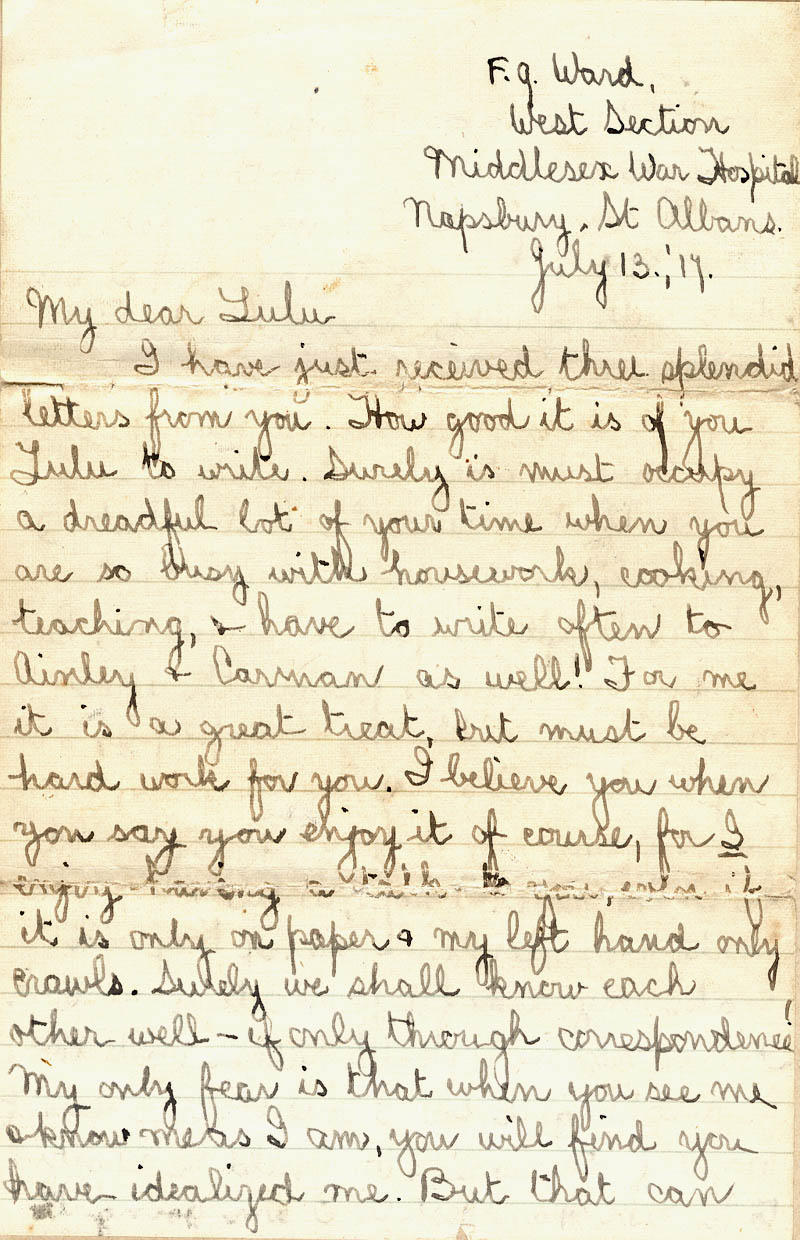 F.9. Ward,
West Section
Middlesex War Hospital
Napsbury. St Albans.
July 13.,'17.
My dear Lulu
I have just received three splendid
letters from you. How good it is of you
Lulu to write. Surely is must occupy
a dreadful lot of your time when you
are so busy with housework, cooking,
teaching, & have to write often to
Ainley & Carman as well! For me
it is a great treat, but must be
hard work for you. I believe you when
you say you enjoy it of course, for I
enjoy having a talk to you, even if
it is only on paper & my left hand only
crawls. Surely we shall know each
other well - if only through correspondence!
My only fear is that when you see me
& know me as I am, you will find you
have idealized me. But that can